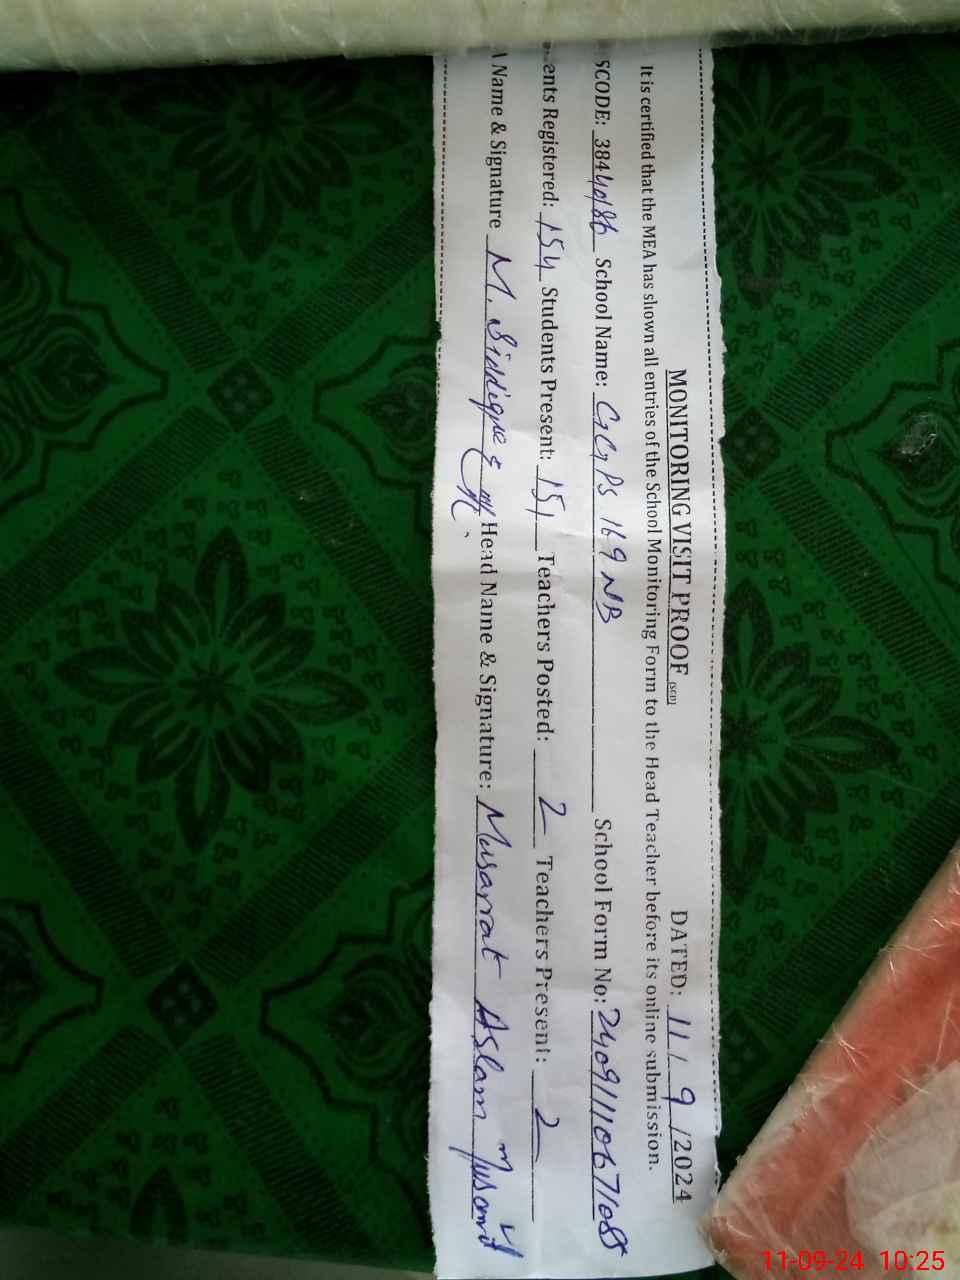 MONITORING VISIT PROOF (SED) DATED: 11/9/2024
It is certified that the MEA has shown all entries of the School Monitoring Form to the Head Teacher before its online submission.
SCODE: 38440186 School Name: GGPS 169 NB School Form No:
ents Registered: 154 Students Present: 151 Teachers Posted: 2 Teachers Present: 2
Name & Signature M. Siddique Head Name & Signature: Musarrat Aslam
11-09-24 10:25